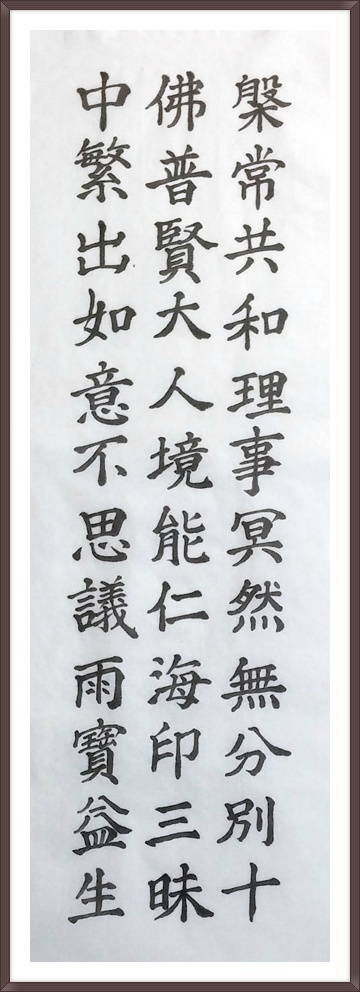 槃常共和理事冥然無分別十
佛普賢大人境能仁海印三昧
中繁出如意不思議雨寶益生